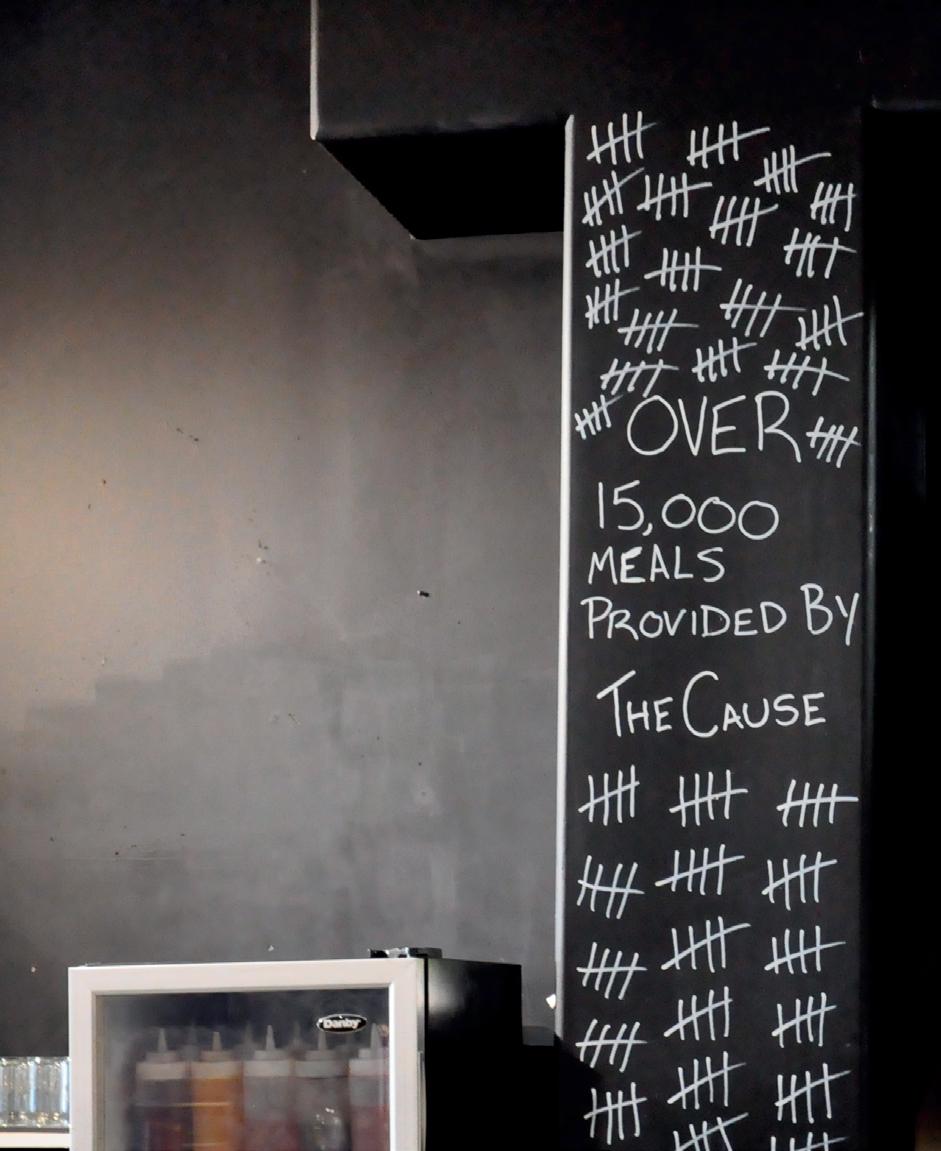 OVER
15,000
MEALS
PROVIDED BY
THE CAUSE
Danby